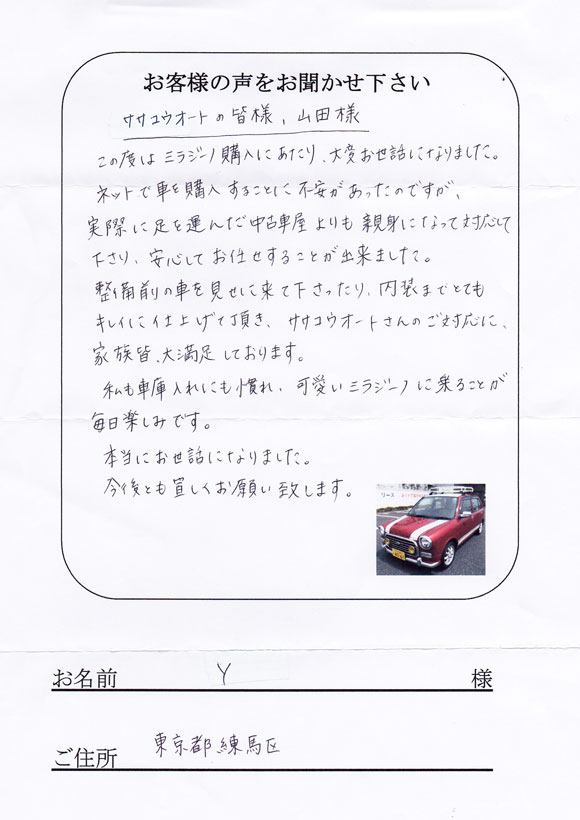 お客様の声をお聞かせ下さい
ササコウオートの皆様、山田様
この度はミラジーノ購入にあたり、大変お世話になりました。
ネットで車を購入することに不安があったのですが、
実際に足を運んだ中古車屋よりも親身になって対応して
下さり、安心してお任せすることが出来ました。
整備前の車を見せに来て下さったり、内装までとても
キレイに仕上げて頂き、ササコウオートさんのご対応に、
家族皆、大満足しております。
私も車庫入れにも慣れ、可愛いミラジーノに乗ることが
毎日楽しみです。
本当にお世話になりました。
今後とも宜しくお願い致します。
リース
お名前 Y 様
ご住所 東京都練馬区